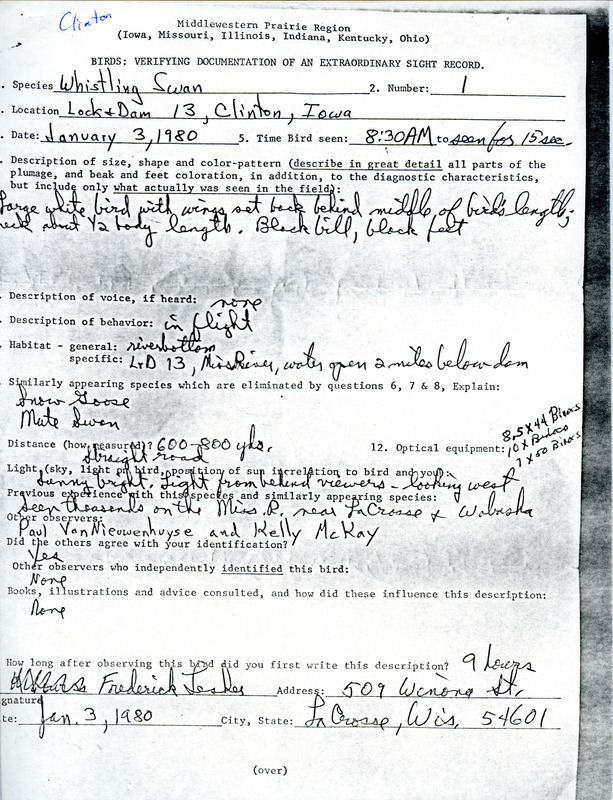 Clinton
Middlewestern Prairie Region
(Iowa, Missouri, Illinois, Indiana, Kentucky, Ohio)
BIRDS: VERIFYING DOCUMENTATION OF AN EXTRAORDINARY SIGHT RECORD.
. Species Whistling Swan 2. Number: 1
. Location Lock & Dam 13, Clinton, Iowa
. Date: January 3, 1980 5. Time Bird seen: 8:30 AM to seen for 15 sec.
. Description of size, shape and color-pattern (describe in great detail all parts of the
plumage, and beak and feet coloration, in addition, to the diagnostic characteristics,
but include only what actually was seen in the field):
Large white bird with wings set back behind middle of birds length;
neck about 1/2 body length. Black bill, black feet
. Description of voice, if heard: none
. Description of behavior: in flight
. Habitat - general: riverbottom
specific: L+D 13, Miss River, water open 2 miles below dam
. Similarly appearing species which are eliminated by questions 6, 7 & 8, Explain:
Snow Goose
Mute Swan
Distance (how measured)? 600-800 yds. 12. Optical equipment: 8.5X44 Binocs
straight road 10X Binocs
7X50 Binocs
Light (sky, light on bird, position of sun in relation to bird and you):
Sunny bright. Light from behind viewers - looking west
Previous experience with this species and similarly appearing species:
Seen thousands on the Miss. R. near LaCrosse & Wabasha
Other observers:
Paul VanNieuwenhuyse and Kelly McKay
Did the others agree with your identification?
Yes
Other observers who independently identified this bird:
None
Books, illustrations and advice consulted, and how did these influence this description:
None
How long after observing this bird did you first write this description? 9 hours
Frederick Lesher Address: 509 Winona St.
gnature
te: Jan. 3, 1980 City, State: LaCrosse, Wis. 54601
(over)